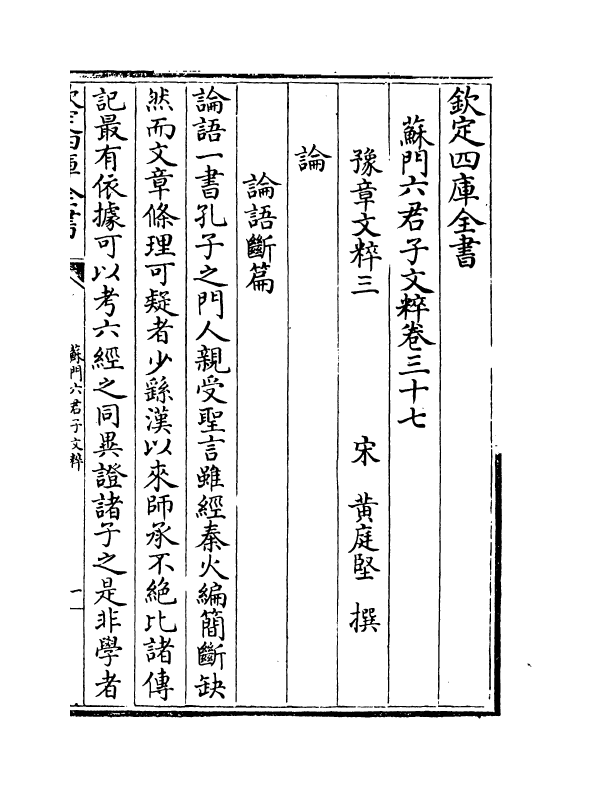 欽定四庫全書
蘇門六君子文粹卷三十七
豫章文粹三 宋 黃庭堅 撰
論
論語斷篇
論語一書孔子之門人親受聖言雖經秦火編簡斷缺
然而文章條理可疑者少繇漢以來師承不絶比諸傳
記最有依據可以考六經之同異證諸子之是非學者
欽定四庫全書
蘇門六君子文粹
一